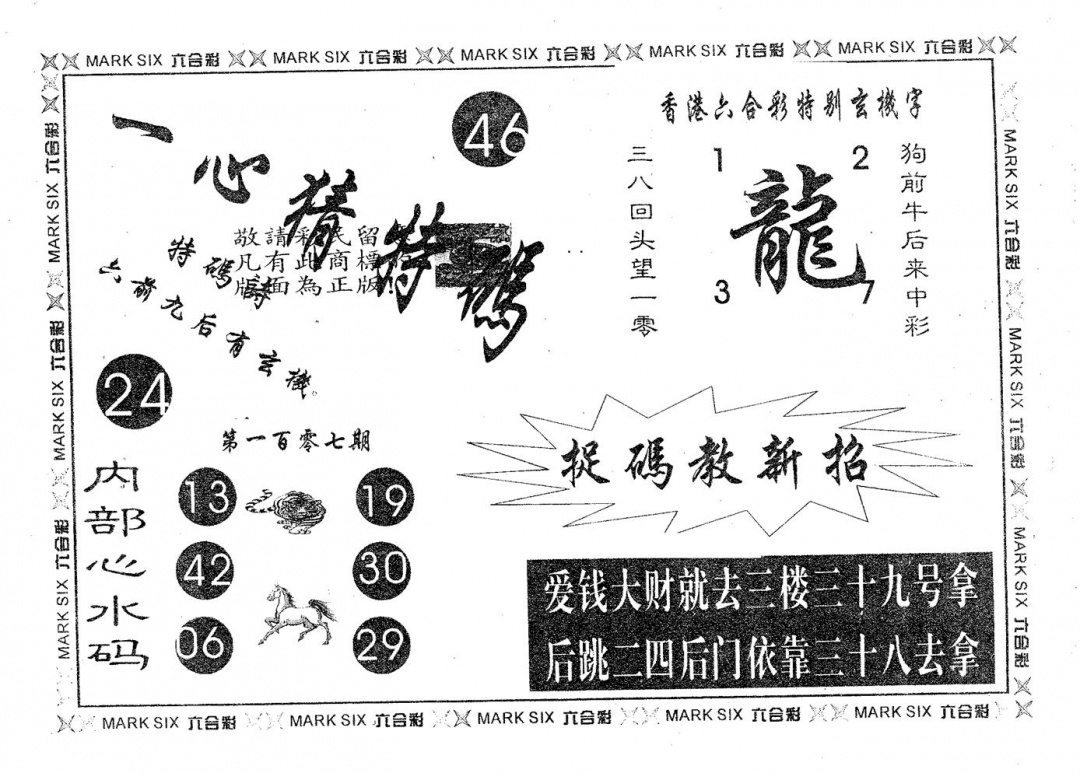 MARK SIX 六合彩 MARK SIX 六合彩 MARK SIX 六合彩 MARK SIX 六合彩 MARK SIX 六合彩
MARK SIX 六合彩 MARK SIX 六合彩 MARK SIX 六合彩
一心猜特碼
46
敬請彩民留
凡有此商標
版面為正版!
特碼詩
六前九后有玄機。
24
香港六合彩特别玄機字
三八回头望一零
1
2
龍
3
7
狗前牛后来中彩
第一百零七期
内部心水码
13
19
42
30
06
29
捉碼教新招
爱钱大财就去三楼三十九号拿
后跳二四后门依靠三十八去拿
MARK SIX 六合彩 MARK SIX 六合彩 MARK SIX 六合彩
MARK SIX 六合彩 MARK SIX 六合彩 MARK SIX 六合彩 MARK SIX 六合彩 MARK SIX 六合彩